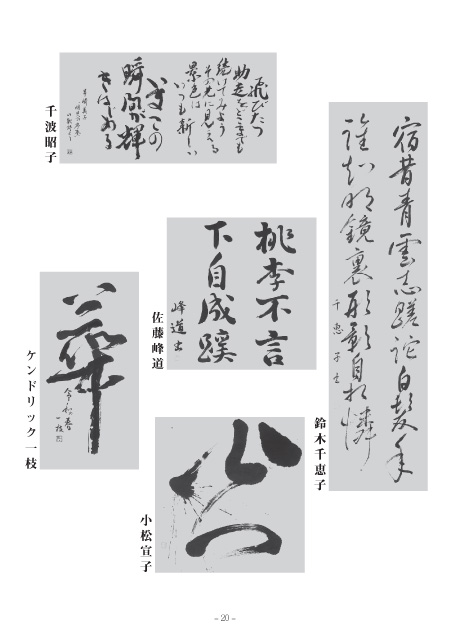 宿昔青雲志蹉跎白髪年
誰知明鏡裏形影自相憐
千恵子書
鈴木千恵子
飛びたつ
助走をどこまでも
続けてみよう
その先に見える
景色は
いつも新しい
瞬間が輝
きはじめる
千波昭子
桃李不言
下自成蹊
峰道書
佐藤峰道
華
令和春
一枝
ケンドリック一枝
小松宣子
– 20 –